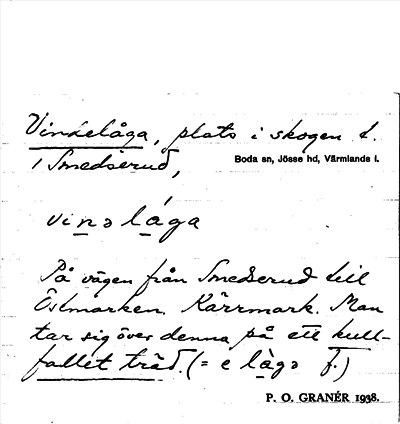 Vindelåga, plats i skogen t.
i Smedserud,
Boda sn, Jösse hd, Värmlands l.
vinəlåga
På vägen från Smedserud till
Östmarken. Kärrmark. Man
tar sig över denna på ett kull-
fallet träd. (= e lågə f.)
P. O. GRANÉR 1938.